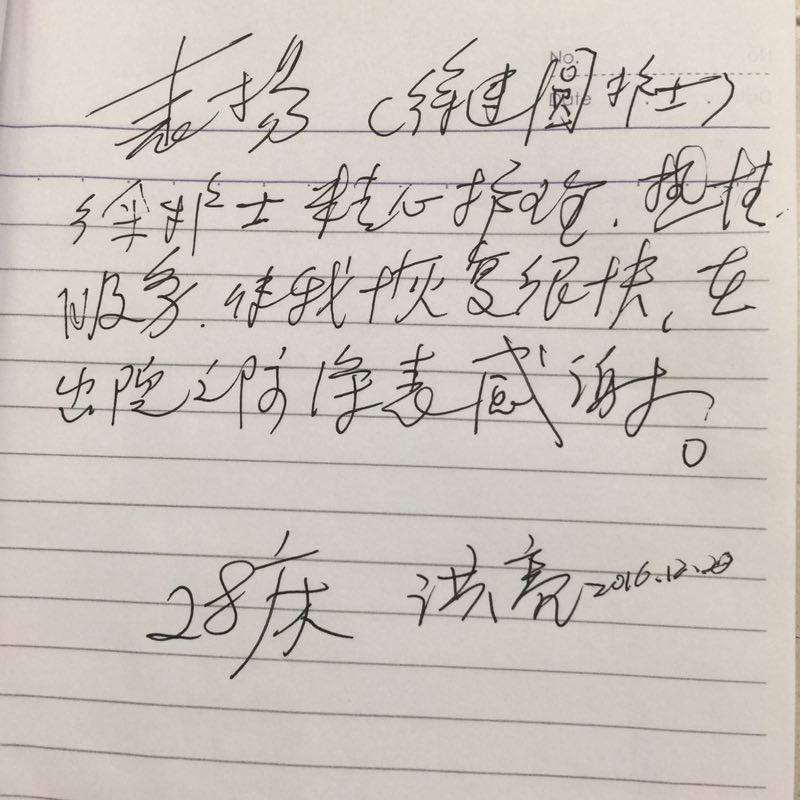 No.
Date
表扬 (徐建圆护士)
徐护士精心护理、热情
服务、使我恢复很快、在
出院之际深表感谢。
28床 洪亮 2016.12.20